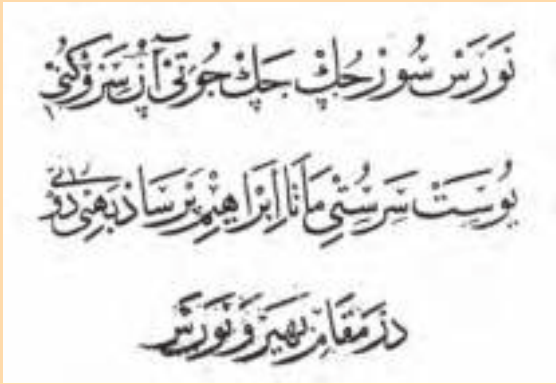 نَوَرَسْ سُورْ جُكْ جَكْ جُوتِيْ آنْ سَرْوْكُنِيْ
يُوسَتْ سَرَسُتِيْ مَاتَا اِبْرَاهِيْمْ پَرَسَادْ بَهئِي دُونِي
دَرْ مَقَامِ بَهيرَوْ نَوْرَسْ